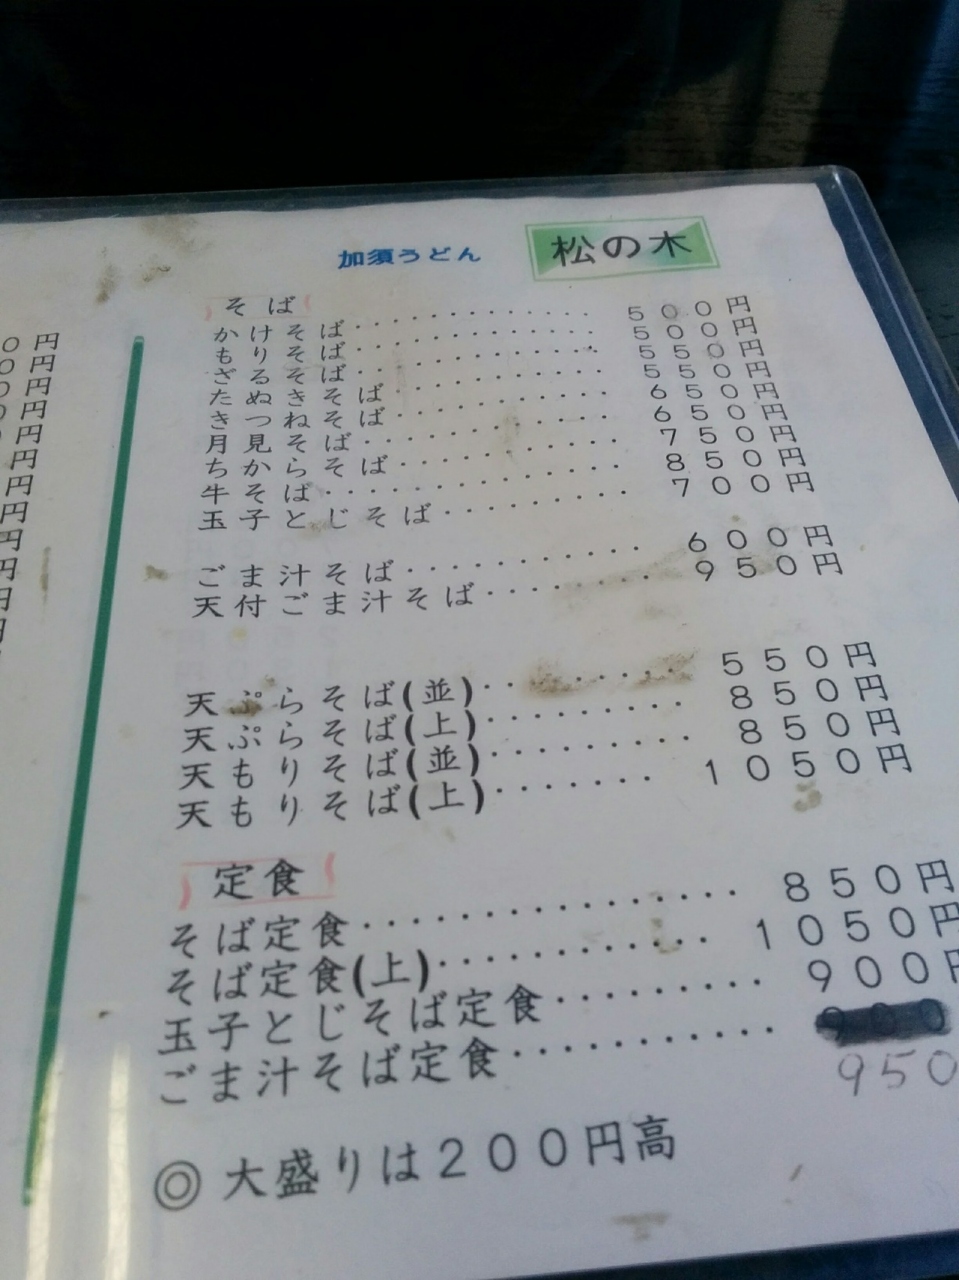 加須うどん 松の木
そば
かけそば・・・・・・・・・・・・500円
もりそば・・・・・・・・・・・・500円
ざるそば・・・・・・・・・・・・550円
たぬきそば・・・・・・・・・・・550円
きつねそば・・・・・・・・・・・650円
月見そば・・・・・・・・・・・・650円
ちからそば・・・・・・・・・・・750円
牛そば・・・・・・・・・・・・・850円
玉子とじそば・・・・・・・・・・700円
ごま汁そば・・・・・・・・・・・600円
天付ごま汁そば・・・・・・・・・950円
天ぷらそば(並)・・・・・・・・・550円
天ぷらそば(上)・・・・・・・・・850円
天もりそば(並)・・・・・・・・・850円
天もりそば(上)・・・・・・・・1050円
定食
そば定食・・・・・・・・・・・・・・・・850円
そば定食(上)・・・・・・・・・・・・1050円
玉子とじそば定食・・・・・・・・・900円
ごま汁そば定食・・・・・・・・・・・950
◎大盛りは200円高